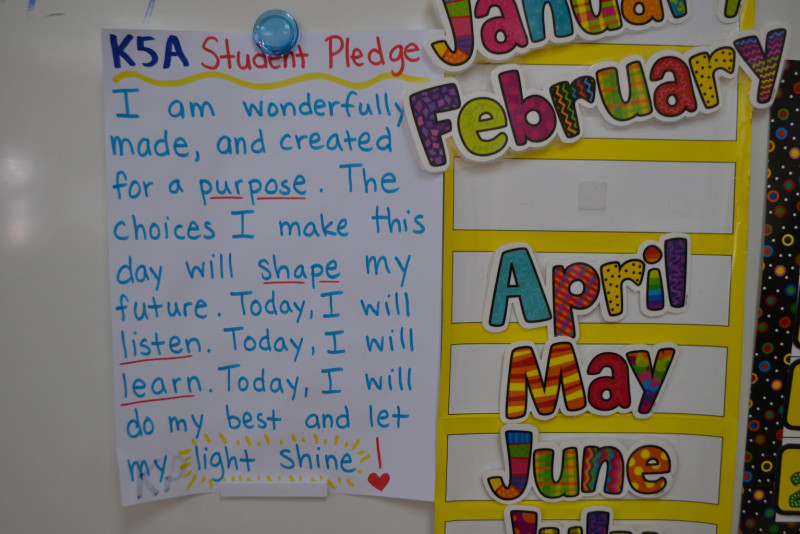 K5A Student Pledge
I am wonderfully
made, and created
for a purpose. The
choices I make this
day will shape my
future. Today, I will
listen. Today, I will
learn. Today, I will
do my best and let
my light shine!
January
February
April
May
June
July